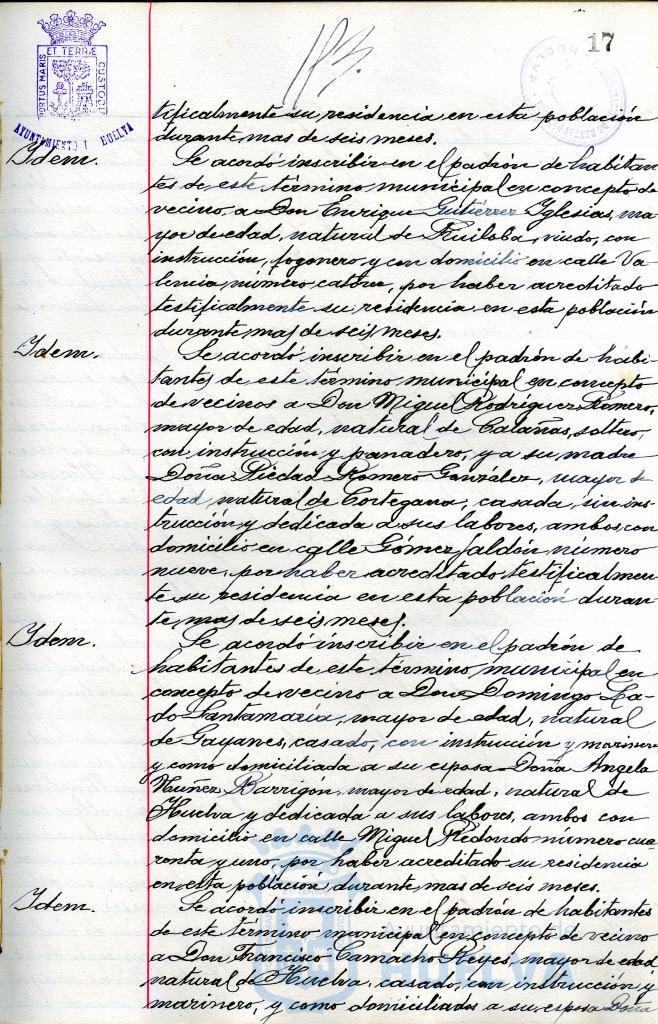 17
PORTUS MARIS ET TERRÆ CUSTODIA
AYUNTAMIENTO HUELVA
tificalmente su residencia en esta población
durante mas de seis meses.
Idem.
Se acordó inscribir en el padrón de habitan
tes de este término municipal en concepto de
vecino, a Don Enrique Gutiérrez Iglesias, ma
yor de edad, natural de Ruiloba, viudo, con
instrucción, fogonero, y con domicilio en calle Va
lencia, número catorce, por haber acreditado
testificalmente su residencia en esta población
durante mas de seis meses.
Idem.
Se acordó inscribir en el padrón de habi-
tantes de este término municipal en concepto
de vecinos a Don Miguel Rodríguez Romero,
mayor de edad, natural de Calañas, soltero,
con instrucción y panadero, y a su madre
Doña Piedad Romero González, mayor de
edad, natural de Cortegana, casada, sin ins-
trucción y dedicada a sus labores, ambos con
domicilio en calle Gómez Jaldón número
nueve, por haber acreditado testificalmen
te su residencia en esta población duran-
te mas de seis meses.
Idem.
Se acordó inscribir en el padrón de
habitantes de este término municipal en
concepto de vecino a Don Domingo
do Santamaría, mayor de edad, natural
de Gayanes, casado, con instrucción y marinero
y como domiciliada a su esposa Doña Angela
Nuñez Barrigón, mayor de edad, natural de
Huelva y dedicada a sus labores, ambos con
domicilio en calle Miguel Redondo número cua
renta y uno, por haber acreditado su residencia
en esta población durante mas de seis meses.
Idem.
Se acordó inscribir en el padrón de habitantes
de este término municipal en concepto de vecino
a Don Francisco Camacho Reyes, mayor de edad
natural de Huelva, casado, con instrucción y
marinero, y como domiciliados a su esposa Doña
Ayuntamiento de
HUELVA